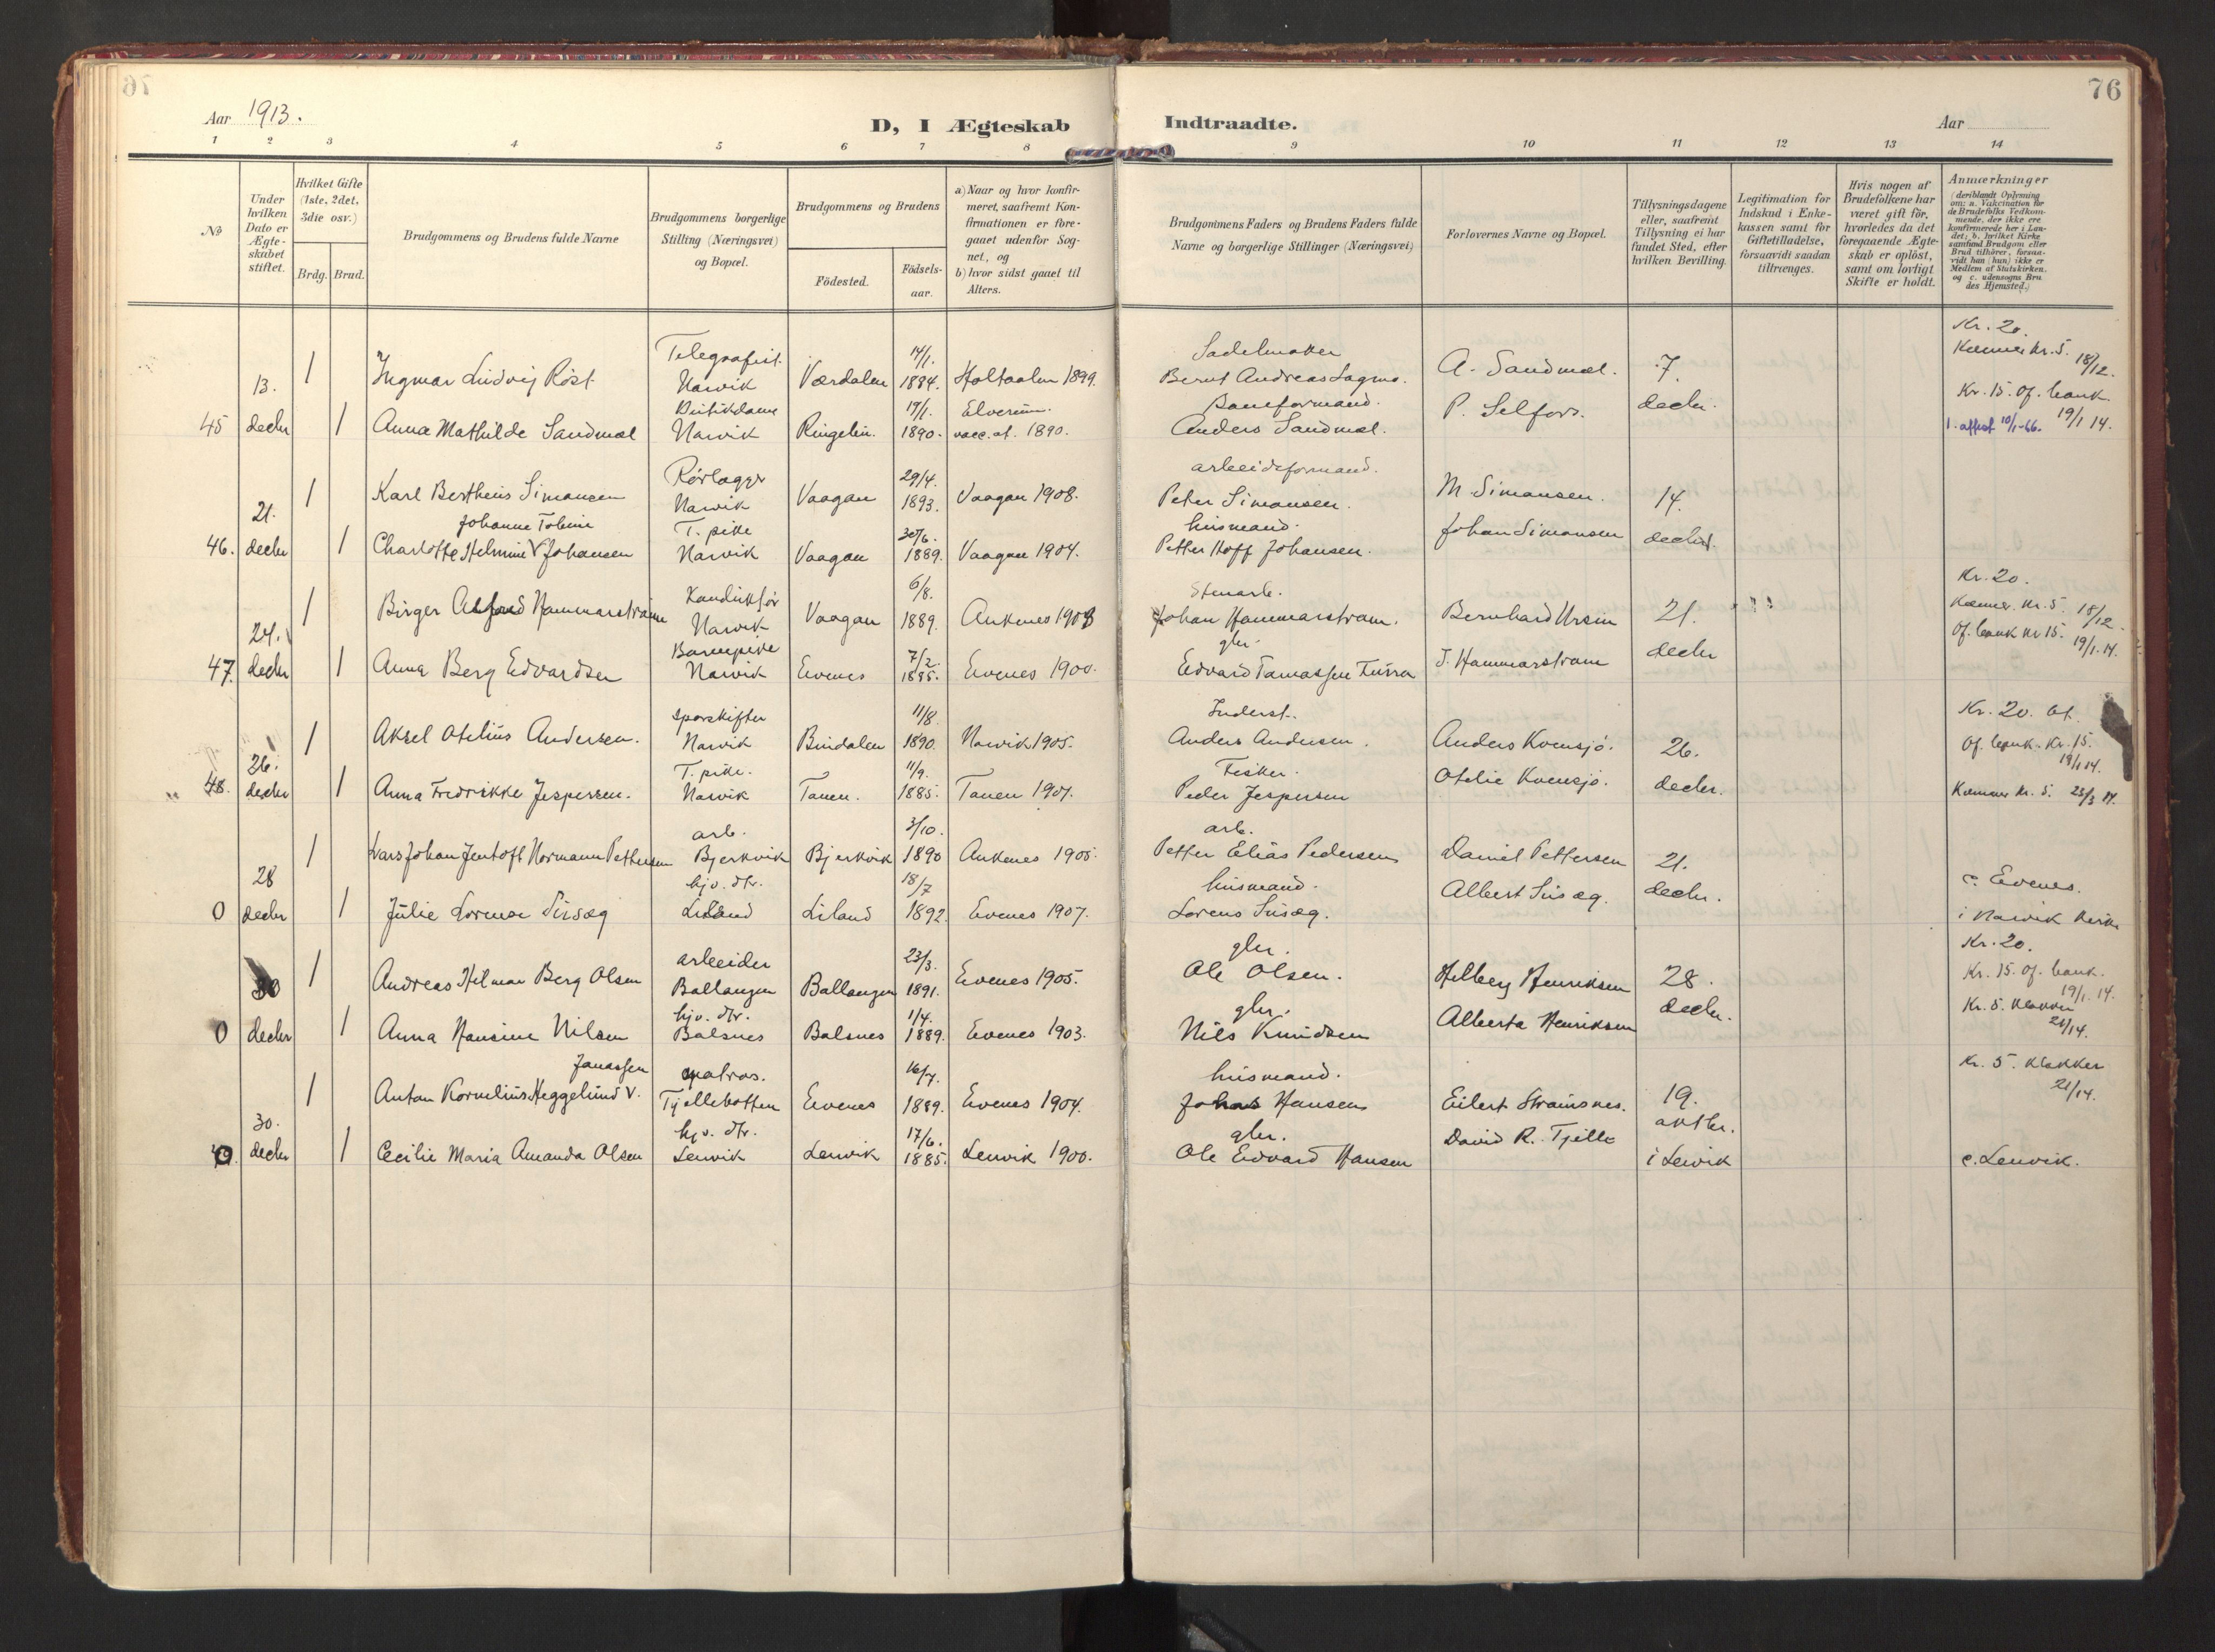 76
Aar 1913.
D, I Ægteskab Indtraadte.
Aar
1 2 3 4 5 6 7 8 9 10 11 12 13 14
No
Under hvilken Dato er Ægteskabet stiftet.
Hvilket Gifte (1ste, 2det, 3die osv.)
Brdg. Brud.
Brudgommens og Brudens fulde Navne
Brudgommens borgerlige Stilling (Næringsvei) og Bopæl.
Brudgommens og Brudens
Födested.
Födsels-aar.
a) Naar og hvor konfirmeret, saafremt Konfirmationen er foregaaet udenfor Sognet, og
b) hvor sidst gaaet til Alters.
Brudgommens Faders og Brudens Faders fulde Navne og borgerlige Stillinger (Næringsvei)
Forlovernes Navne og Bopæl.
Tillysningsdagene eller, saafremt Tillysning ei har fundet Sted, efter hvilken Bevilling.
Legitimation for Indskud i Enkekassen samt for Giftetilladelse, forsaavidt saadan tiltrænges.
Hvis nogen af Brudefolkene har været gift för, hvorledes da det foregaaende Ægteskab er oplöst, samt om lovligt Skifte er holdt.
Anmærkninger
(deriblandt Oplysning om: a. Vaccination for de Brudefolks Vedkommende, der ikke ere konfirmerede her i Landet; b. hvilket Kirkesamfund Brudgom eller Brud tilhörer, forsaavidt han (hun) ikke er Medlem af Statskirken, og c. udensogns Brudes Hjemsted.)
Telegrafist. 14/1. Sadelmaker Kr. 20.
13. 1 Ingmar Ludvig Röst Narvik Værdalen 1884. Holtaalen 1899. Bernt Andreas Sagmo. A. Sandmæl. 7. Kæmner Kr. 5. 18/12.
Butikdame 19/1. Elverum. Baneformand. P. Selfors. decbr. Kr. 15. Of. bank 19/1 14.
45 decbr 1 Anna Mathilde Sandmæl Narvik 1890. vacc. at. 1890. Anders Sandmæl. 1. attest 10/1-66.
Rörlægger 29/4. arbeidsformand.
21. 1 Karl Bertheus Simonsen Narvik Vaagan 1893. Vaagan 1908. Peter Simonsen. M. Simonsen. 14.
Johanne T. pike 30/6. husmand. Johan Simonsen decbr.
46. decbr 1 Charlotte Helmine V Johansen Narvik Vaagan 1889. Vaagan 1904. Petter Hoff Johansen.
Konduktør 6/8. Stenarb. Kr. 20.
24. 1 Birger Alfred Hammarstrøm Narvik Vaagan 1889. Ankenes 1903 Johan Hammarstrøm. Bernhard Ursin 21. Kæmner. Kr. 5. 18/12
Barnepike 7/2. gbr J. Hammarstrøm decbr Of. bank Kr 15. 19/1. 14.
47. decbr 1 Anna Berg Edvardsen Narvik Evenes 1885. Evenes 1900. Edvard
Sporskifter 11/8. Inderst. Kr. 20.
26. 1 Aksel Otelius Andersen. Narvik Bindalen 1890. Narvik 1905. Anders Andersen. Anders Kvensjö. 26. Of. bank. Kr. 15. 19/1 14.
T. pike. 11/9. Fisker. Otelie Kvensjö. decbr.
48. decbr 1 Anna Fredrikke Jespersen. Narvik Tanen. 1885. Tanen 1901. Peder Jespersen Kæmner Kr. 5. 23/3 14.
arb. 3/10. arb.
1 Lars Johan Jentoft Normann Pettersen Bjerkvik Bjerkvik 1890 Ankenes 1905. Petter Elias Pedersen Daniel Pettersen 21.
28 hjv. dtr. 18/7 husmand. Albert decbr. c. Evenes.
0 decbr 1 Julie Lorense Liland Liland 1892. Evenes 1907. Lorens i Narvik kirke
arbeider 23/3. gbr. Kr. 20.
30 1 Andreas Helmar Berg Olsen Ballangen Ballangen 1891. Evenes 1905. Ole Olsen. Helberg Henriksen 28. Kr. 15. Of. bank. 19/1. 14.
hjv. dtr. 1/4. gbr. decbr. Kr. 5. Klokker 21/14.
0 decbr 1 Anna Hansine Nilsen Balsnes Balsnes 1889. Evenes 1903. Nils Knudsen Alberta Henriksen
Janassen matros. 16/7. husmand. Kr. 5. Klokker 21/14.
1 Anton Kornelius Heggelund V. Tjellebotten Evenes 1889. Evenes 1904. Johas Hansen Eilert Strømsnes. 19.
30. hjv. dtr. 17/6. gbr. David R. Tjelle oktbr.
0 decbr 1 Cecilie Maria Amanda Olsen Lenvik Lenvik 1885. Lenvik 1900. Ole Edvard Hansen i Lenvik c. Lenvik.